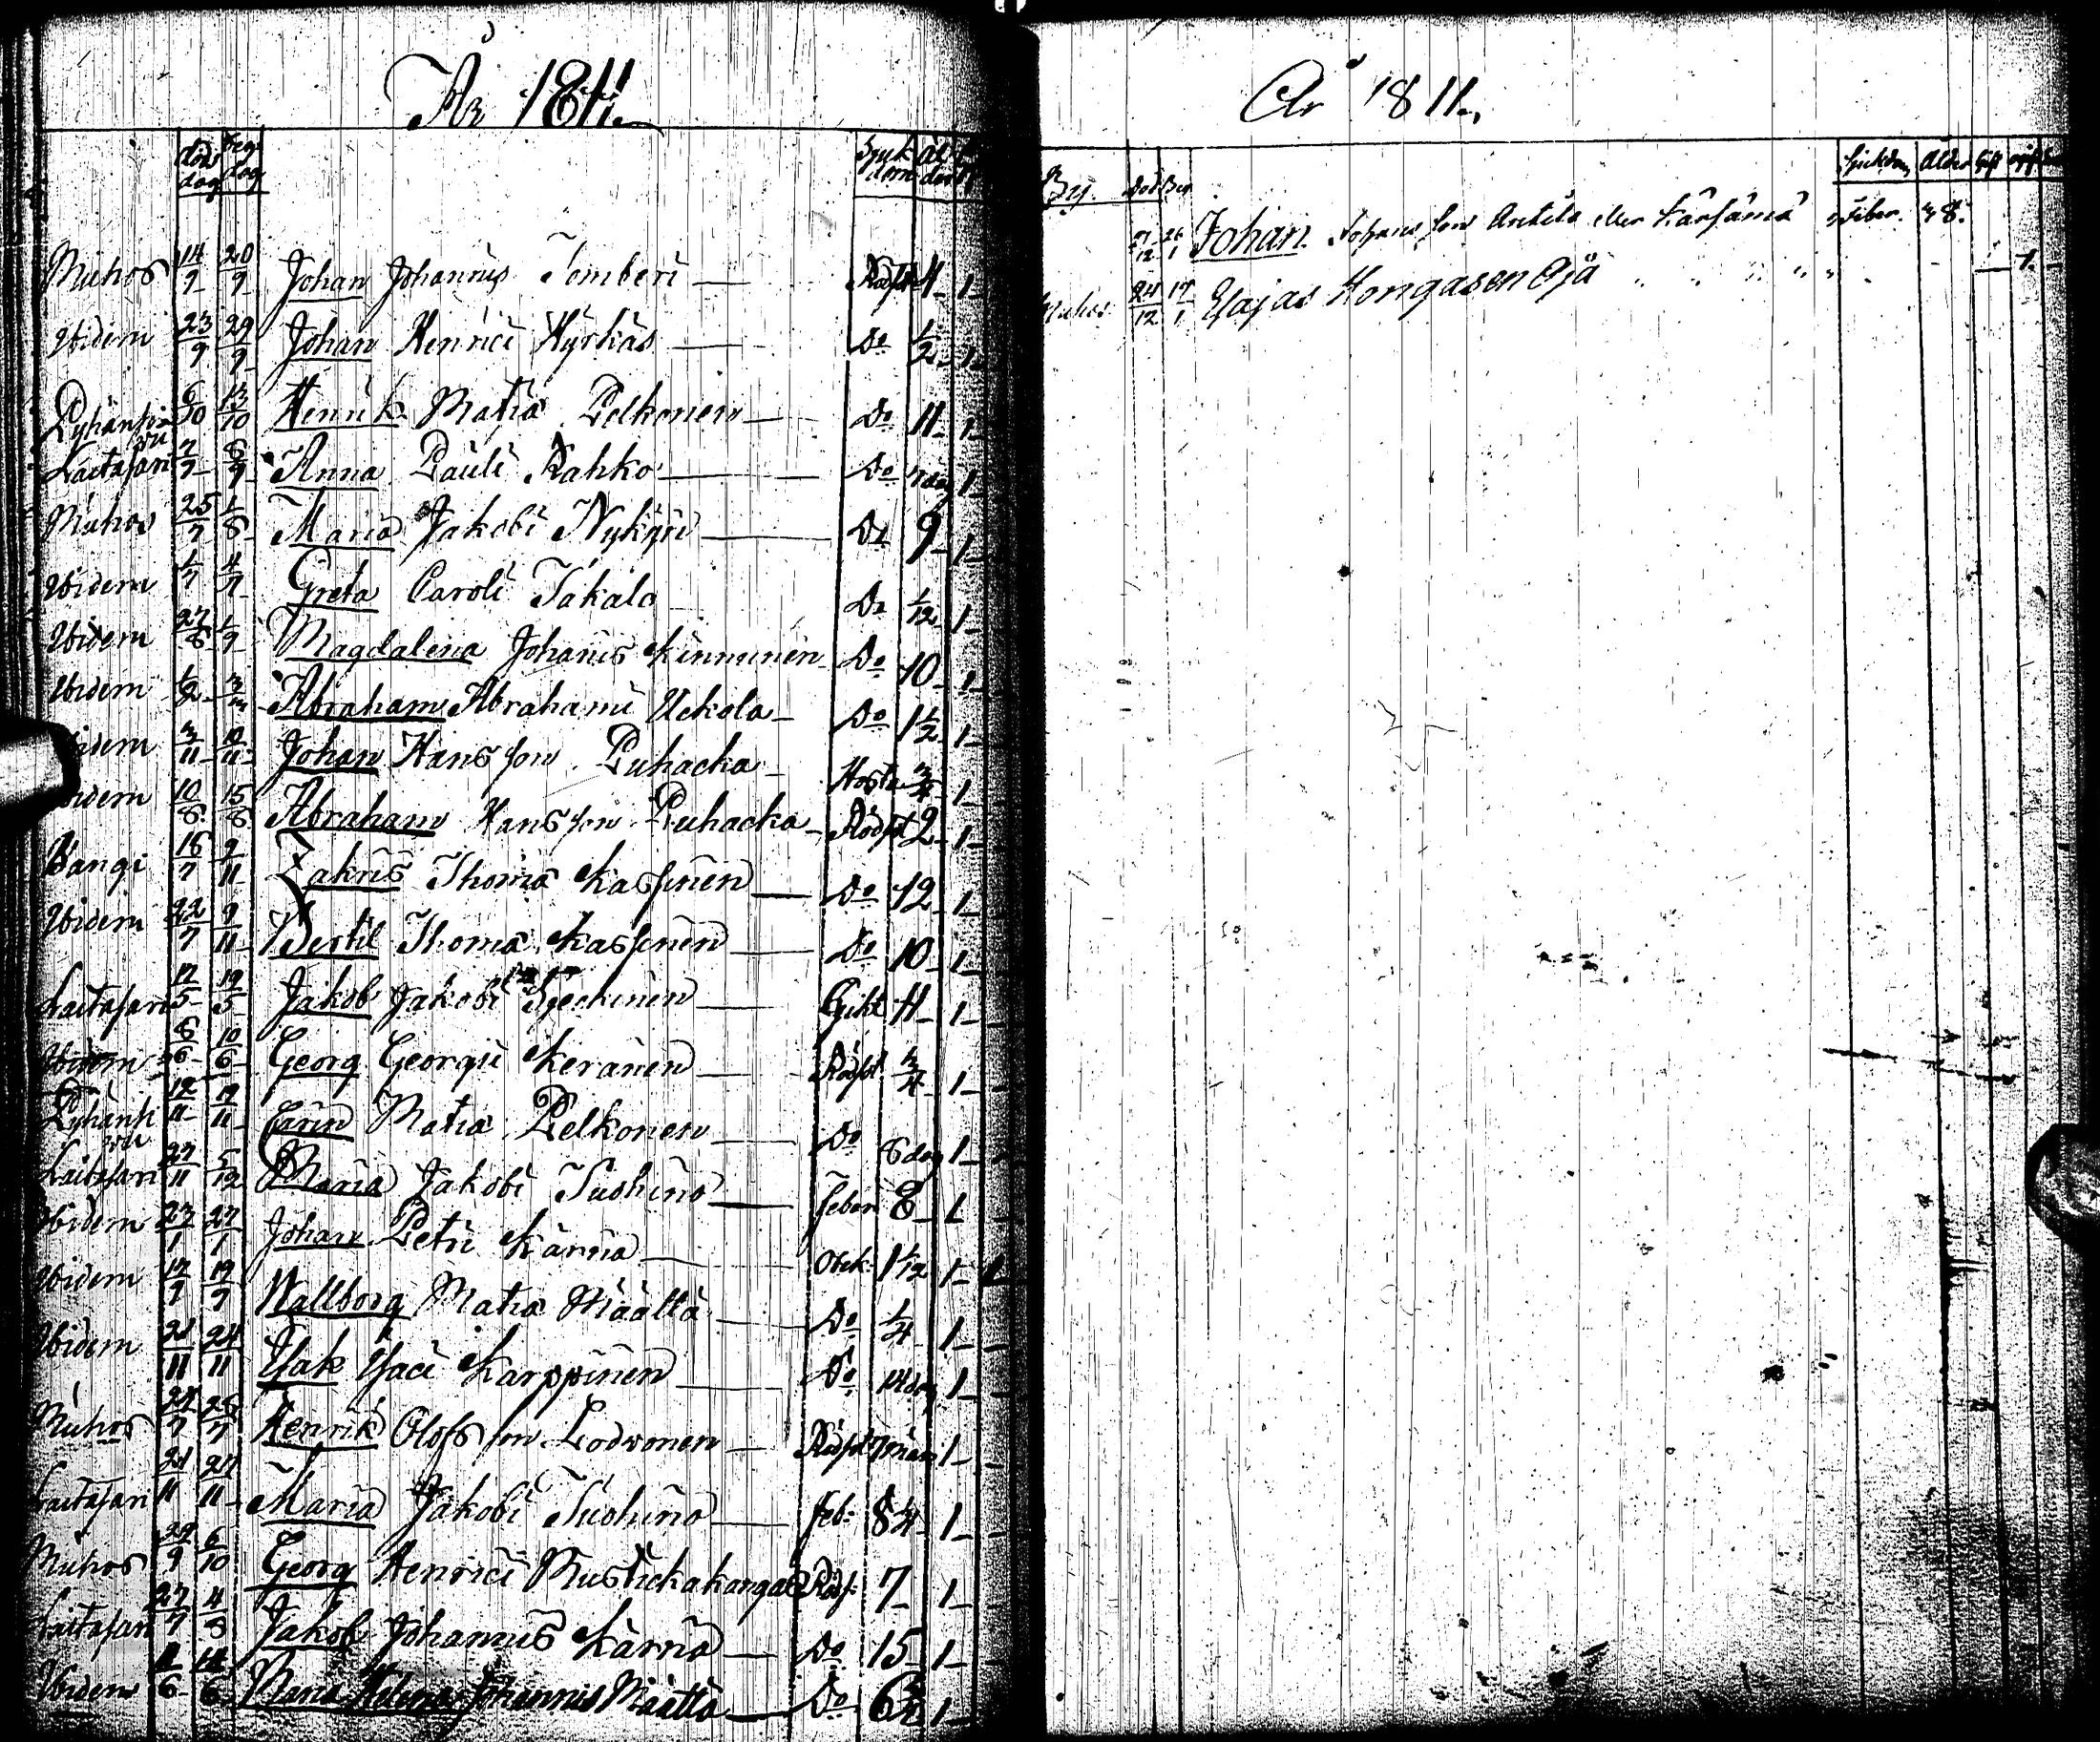 År 1811.
död dag Beg dag Sjuk dom Ål der
Muhos 14/9 20/9 Johan Johannis Tomberi Rödsot 4 1
Ibidem 23/9 29/9 Johan Henrici Hyrkäs Do 1/2 1
Pyhänsi vu 6/10 13/10 Henrik Matiæ Pelkonen Do 11 1
Laitasari 7/7 8/9 Anna Pauli Kahko Do 7 dag 1
Muhos 25/7 1/8 Maria Jakobi Nykyri Do 9 1
Ibidem 1/7 4/7 Greta Caroli Takalo Do 1/12 1
Ibidem 27/8 1/9 Magdalena Johanis Kinnunen Do 10 1
Ibidem Abraham Abrahami Uckola Do 1 1/2 1
Ibidem 3/11 10/11 Johan Hansson Puhacka Hosta 3/4 1
Ibidem 10/8 15/8 Abraham Hansson Puhacka Rödsot 2 1
Sangi 16/7 9/11 Zakris Thomæ Kassinen Do 12 1
Ibidem 22/7 9/11 Bertil Thomæ Kassinen Do 10 1
Laitasari 12/5 19/5 Jakob Jakobi Gikt 4 1
Ibidem 6/6 10/6 Georg Georgii Keränen Rödsot 3/4 1
Pyhänk vu 12/11 17/11 Carin Matiæ Pelkonen Do 8 dag 1
Laitasari 27/11 5/12 Maria Jakobi Tuohino feber 8 1
Ibidem 23/1 27/1 Johan Petri Kärnä Obek. 1 1/12 1
Ibidem 17/7 19/7 Wallborg Matiæ Määttä Do 1/4 1
Ibidem 21/11 24/11 Isak Isaci Karppinen Do 14 dag 1
Muhos 24/7 28/7 Henrik Olofsson Lodwonen Rödsot 7 mån 1
Laitasari 21/11 24/11 Maria Jakobi Tuohino feb: 8 1/4 1
Muhos 29/9 6/10 Georg Henrici Mustickakangas Röds. 7 1
Laitasari 27/7 4/8 Jakob Johannis Kärnä Do 15 1
Ibidem 6 6 Maria Helena Johannis Määttä Do 6 1
År 1811.
By. Död Beg Sjukdom Ålder Gift ogift
21/12 26/1 Johan Johansson Anttila eller Kärsämä Feber 8.
Muhos 24/12 17/1 Esajas Hongasen Ojä " " " " " 1